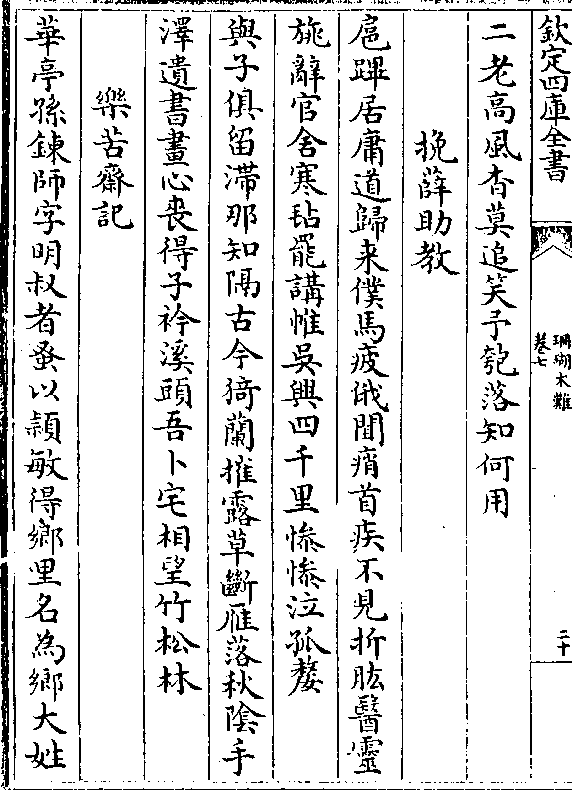 欽定四庫全書
珊瑚木難
卷七
二十
二老高風杳莫追笑予匏落知何用
挽薛助教
扈蹕居庸道歸来僕馬疲俄聞痟首疾不見折肱醫靈
旐辭官舍寒毡罷講帷吳興四千里慘慘泣孤嫠
與子俱留滯那知隔古今猗蘭摧露草斷雁落秋陰手
澤遺書畫心喪得子衿溪頭吾卜宅相望竹松林
樂苦齋記
華亭孫鍊師字明叔者蚤以頴敏得鄉里名為鄉大姓